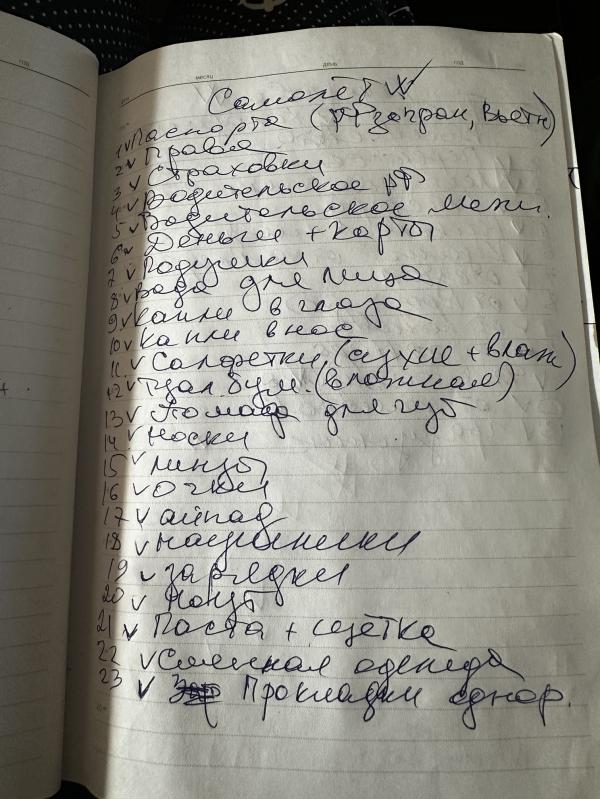 год
месяц
день
год
Самолёт
1 Паспорта (РФ загран, Вьетн)
2 Права
3 Страховки
4 Водительское РФ
5 Водительское межн.
6 Деньги + карты
7 Подушки
8 Вода для лица
9 Капли в глаза
10 Капли в нос
11 Салфетки (сухие + влаж)
12 Туал бум. (влажная)
13 Помада для губ
14 Носки
15 Линзы
16 Очки
17 Айпад
18 Наушники
19 Зарядки
20 Ноут
21 Паста + щетка
22 Сменная одежда
23 Прокладки однор.